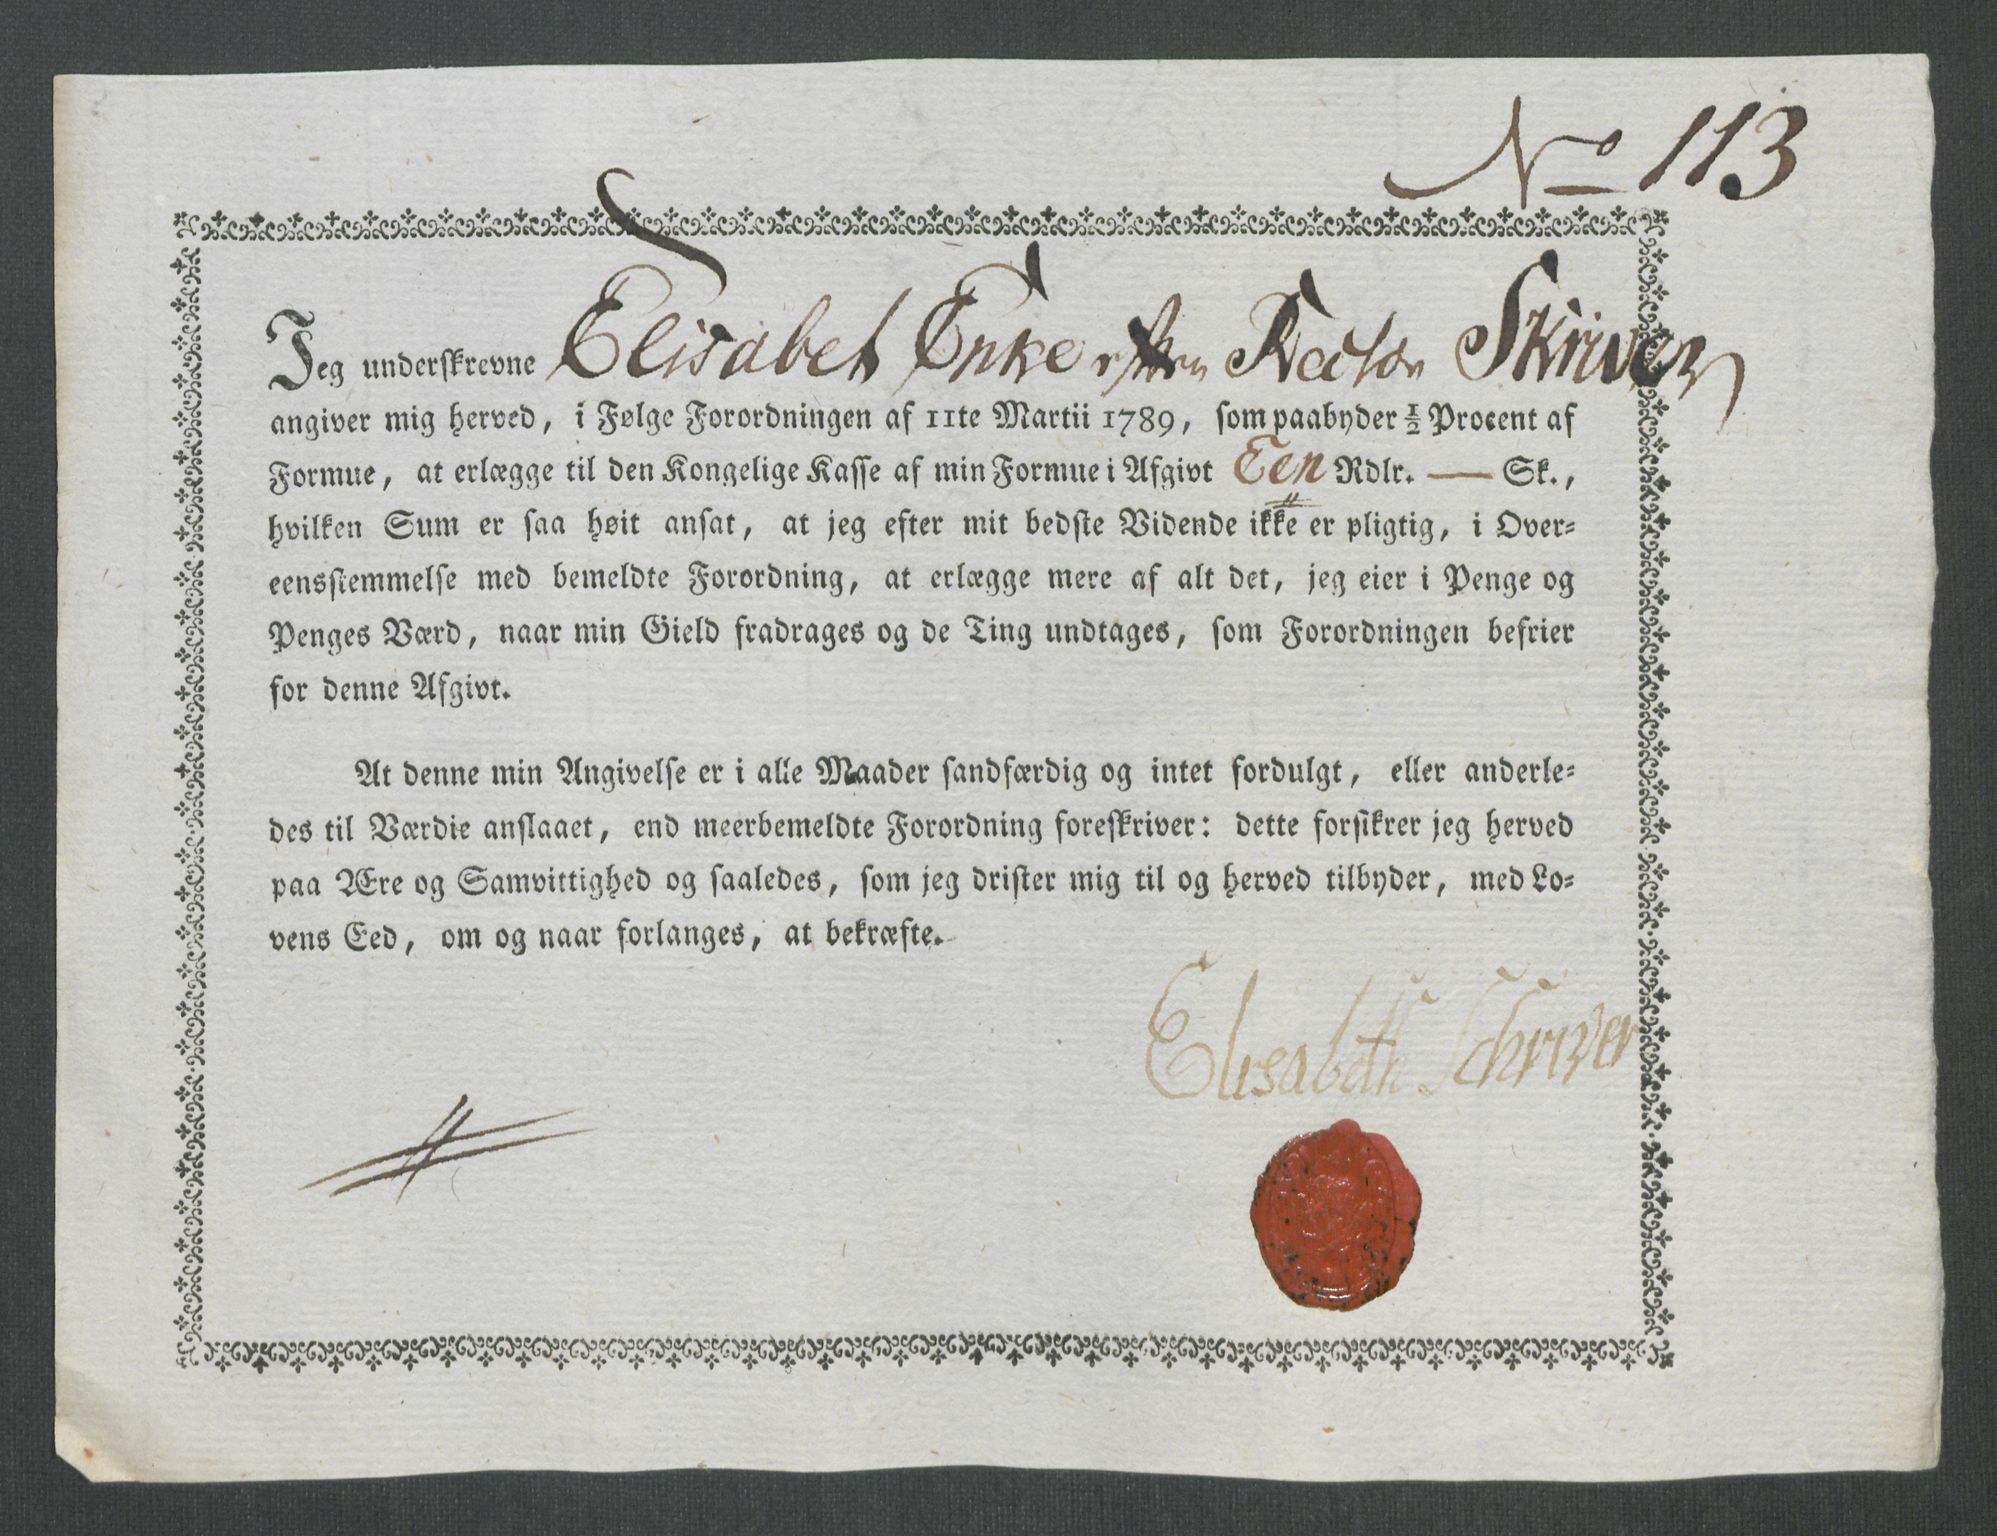 No 113
Jeg underskrevne Elisabet Enke efter Rector Skriver
angiver mig herved, i Følge Forordningen af 11te Martii 1789, som paabyder ½ Procent af
Formue, at erlægge til den Kongelige Kasse af min Formue i Afgivt Een Rdlr. — Sk.,
hvilken Sum er saa høit ansat, at jeg efter mit bedste Vidende ikke er pligtig, i Over-
eensstemmelse med bemeldte Forordning, at erlægge mere af alt det, jeg eier i Penge og
Penges Værd, naar min Gield fradrages og de Ting undtages, som Forordningen befrier
for denne Afgivt.
At denne min Angivelse er i alle Maader sandfærdig og intet fordulgt, eller anderle-
des til Værdie anslaaet, end meerbemeldte Forordning foreskriver: dette forsikrer jeg herved
paa Ære og Samvittighed og saaledes, som jeg drister mig til og herved tilbyder, med Lo-
vens Eed, om og naar forlanges, at bekræfte.
Elisabeth Schriver